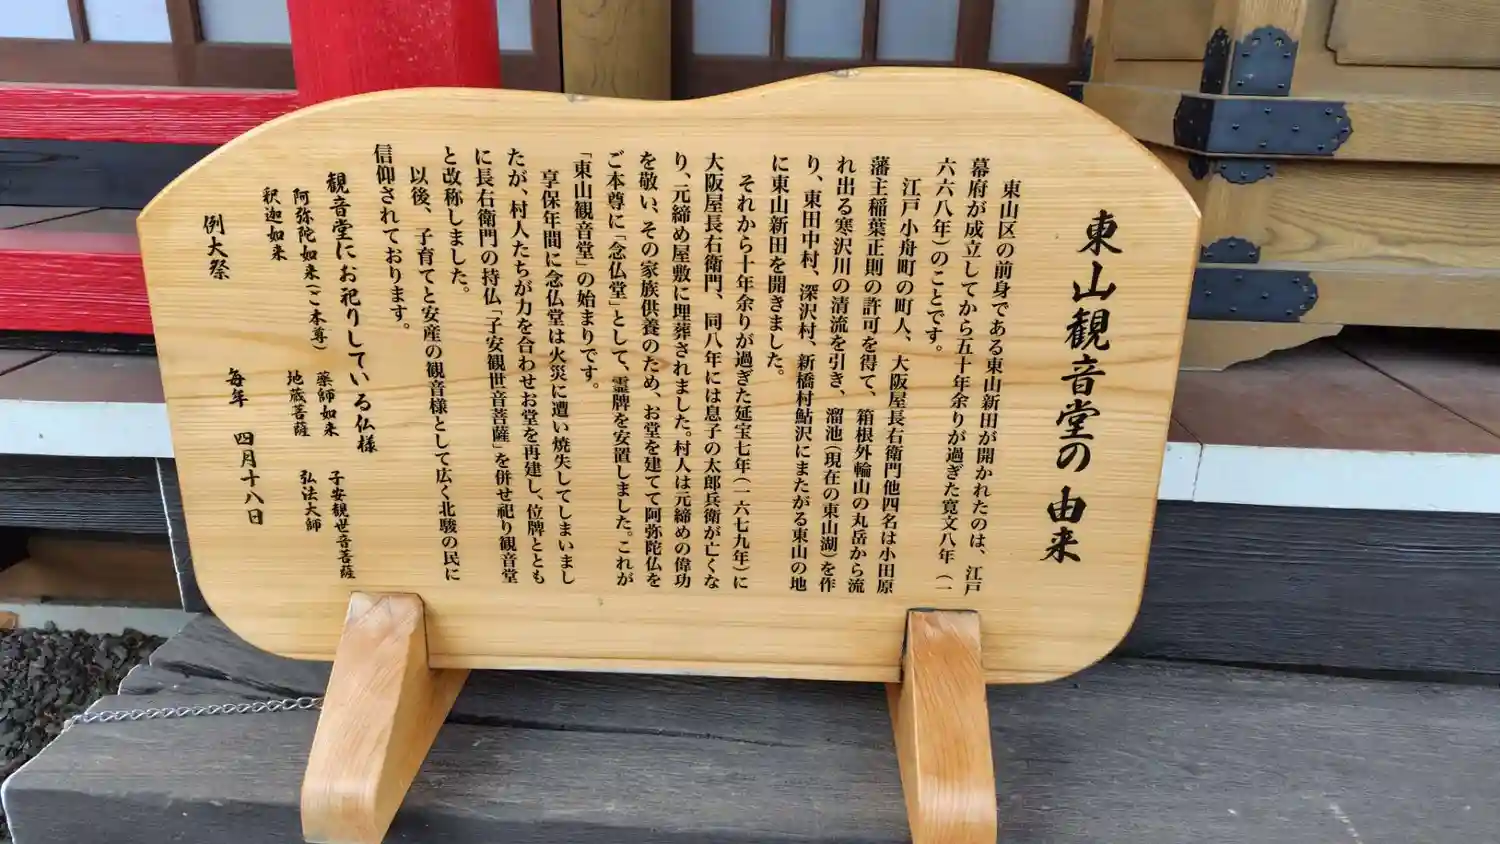 東山観音堂の由来
東山区の前身である東山新田が開かれたのは、江戸
幕府が成立してから五十年余りが過ぎた寛文八年（一
六六八年）のことです。
江戸小舟町の町人、大阪屋長右衛門他四名は小田原
藩主稲葉正則の許可を得て、箱根外輪山の丸岳から流
れ出る寒沢川の清流を引き、溜池（現在の東山湖）を作
り、東田中村、深沢村、新橋村鮎沢にまたがる東山の地
に東山新田を開きました。
それから十年余りが過ぎた延宝七年（一六七九年）に
大阪屋長右衛門、同八年には息子の太郎兵衛が亡くな
り、元締め屋敷に埋葬されました。村人は元締めの偉功
を敬い、その家族供養のため、お堂を建てて阿弥陀仏を
ご本尊に「念仏堂」として、霊牌を安置しました。これが
「東山観音堂」の始まりです。
享保年間に念仏堂は火災に遭い焼失してしまいまし
たが、村人たちが力を合わせお堂を再建し、位牌ととも
に長右衛門の持仏「子安観世音菩薩」を併せ祀り観音堂
と改称しました。
以後、子育てと安産の観音様として広く北駿の民に
信仰されております。
観音堂にお祀りしている仏様
阿弥陀如来（ご本尊）　薬師如来　子安観世音菩薩
釈迦如来　地蔵菩薩　弘法大師
例大祭　毎年　四月十八日